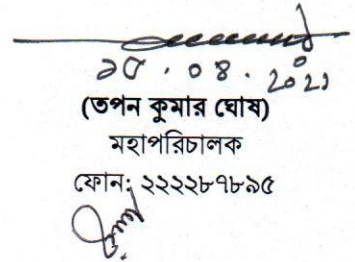 ২৫.০৪.২০২১
(তপন কুমার ঘোষ)
মহাপরিচালক
ফোন: ২২২২৮৭৮৯৫